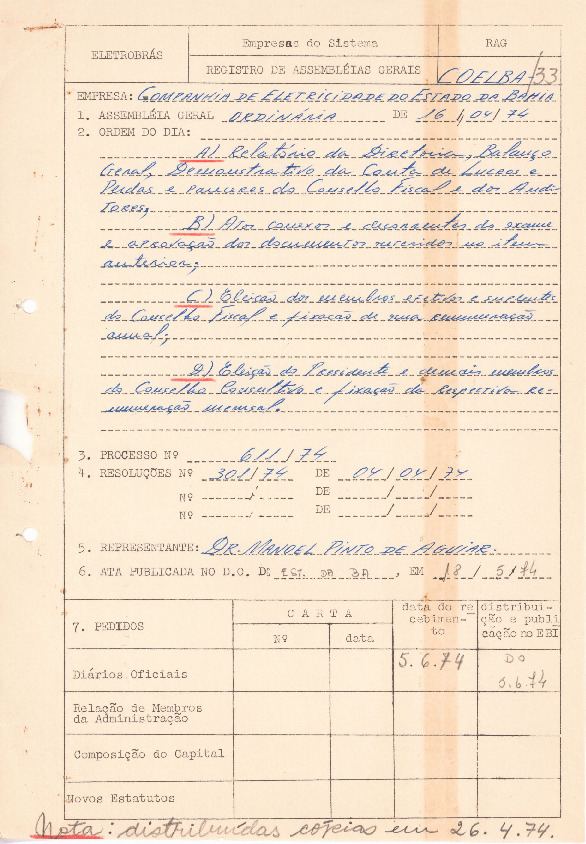 ELETROBRÁS
Empresas do Sistema
RAG
REGISTRO DE ASSEMBLÉIAS GERAIS
COELBA/33
EMPRESA: COMPANHIA DE ELETRICIDADE DO ESTADO DA BAHIA
1. ASSEMBLÉIA GERAL ORDINÁRIA DE 16/04/74
2. ORDEM DO DIA:
A) Relatório da Diretoria, Balanço
Geral, Demonstrativo da Conta de Lucros e
Perdas e pareceres do Conselho Fiscal e dos Audi-
tores;
B) Atos conexos e decorrentes do exame
e aprovação dos documentos referidos no item
anterior;
C) Eleição dos membros efetivos e suplentes
do Conselho Fiscal e fixação de sua remuneração
anual;
D) Eleição do Presidente e demais membros
do Conselho Consultivo e fixação da respectiva re-
muneração mensal.
3. PROCESSO Nº 611/74
4. RESOLUÇÕES Nº 301/74 DE 04/04/74
Nº / DE / /
Nº / DE / /
5. REPRESENTANTE: DR. MANOEL PINTO DE AGUIAR.
6. ATA PUBLICADA NO D.O. DE EST. DA BA, EM 18/5/74
7. PEDIDOS
C A R T A
Nº
data
data do re
cebimen-
to
distribui-
ção e publi
cação no EBI
Diários Oficiais
5.6.74
DO
5.6.74
Relação de Membros
da Administração
Composição do Capital
Novos Estatutos
Nota: distribuídas cópias em 26.4.74.